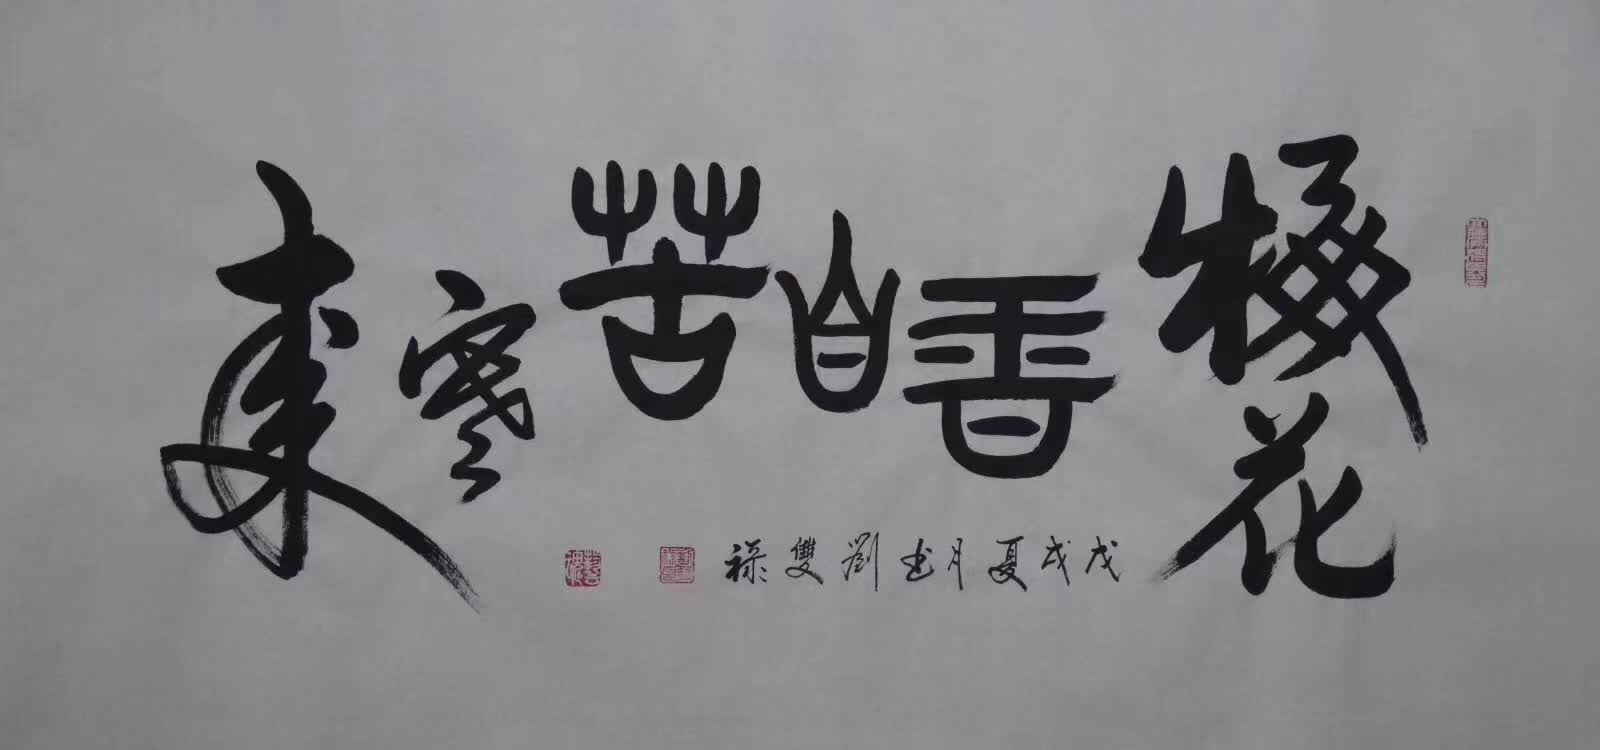 梅花香自苦寒來
戊戌夏月書劉雙祿